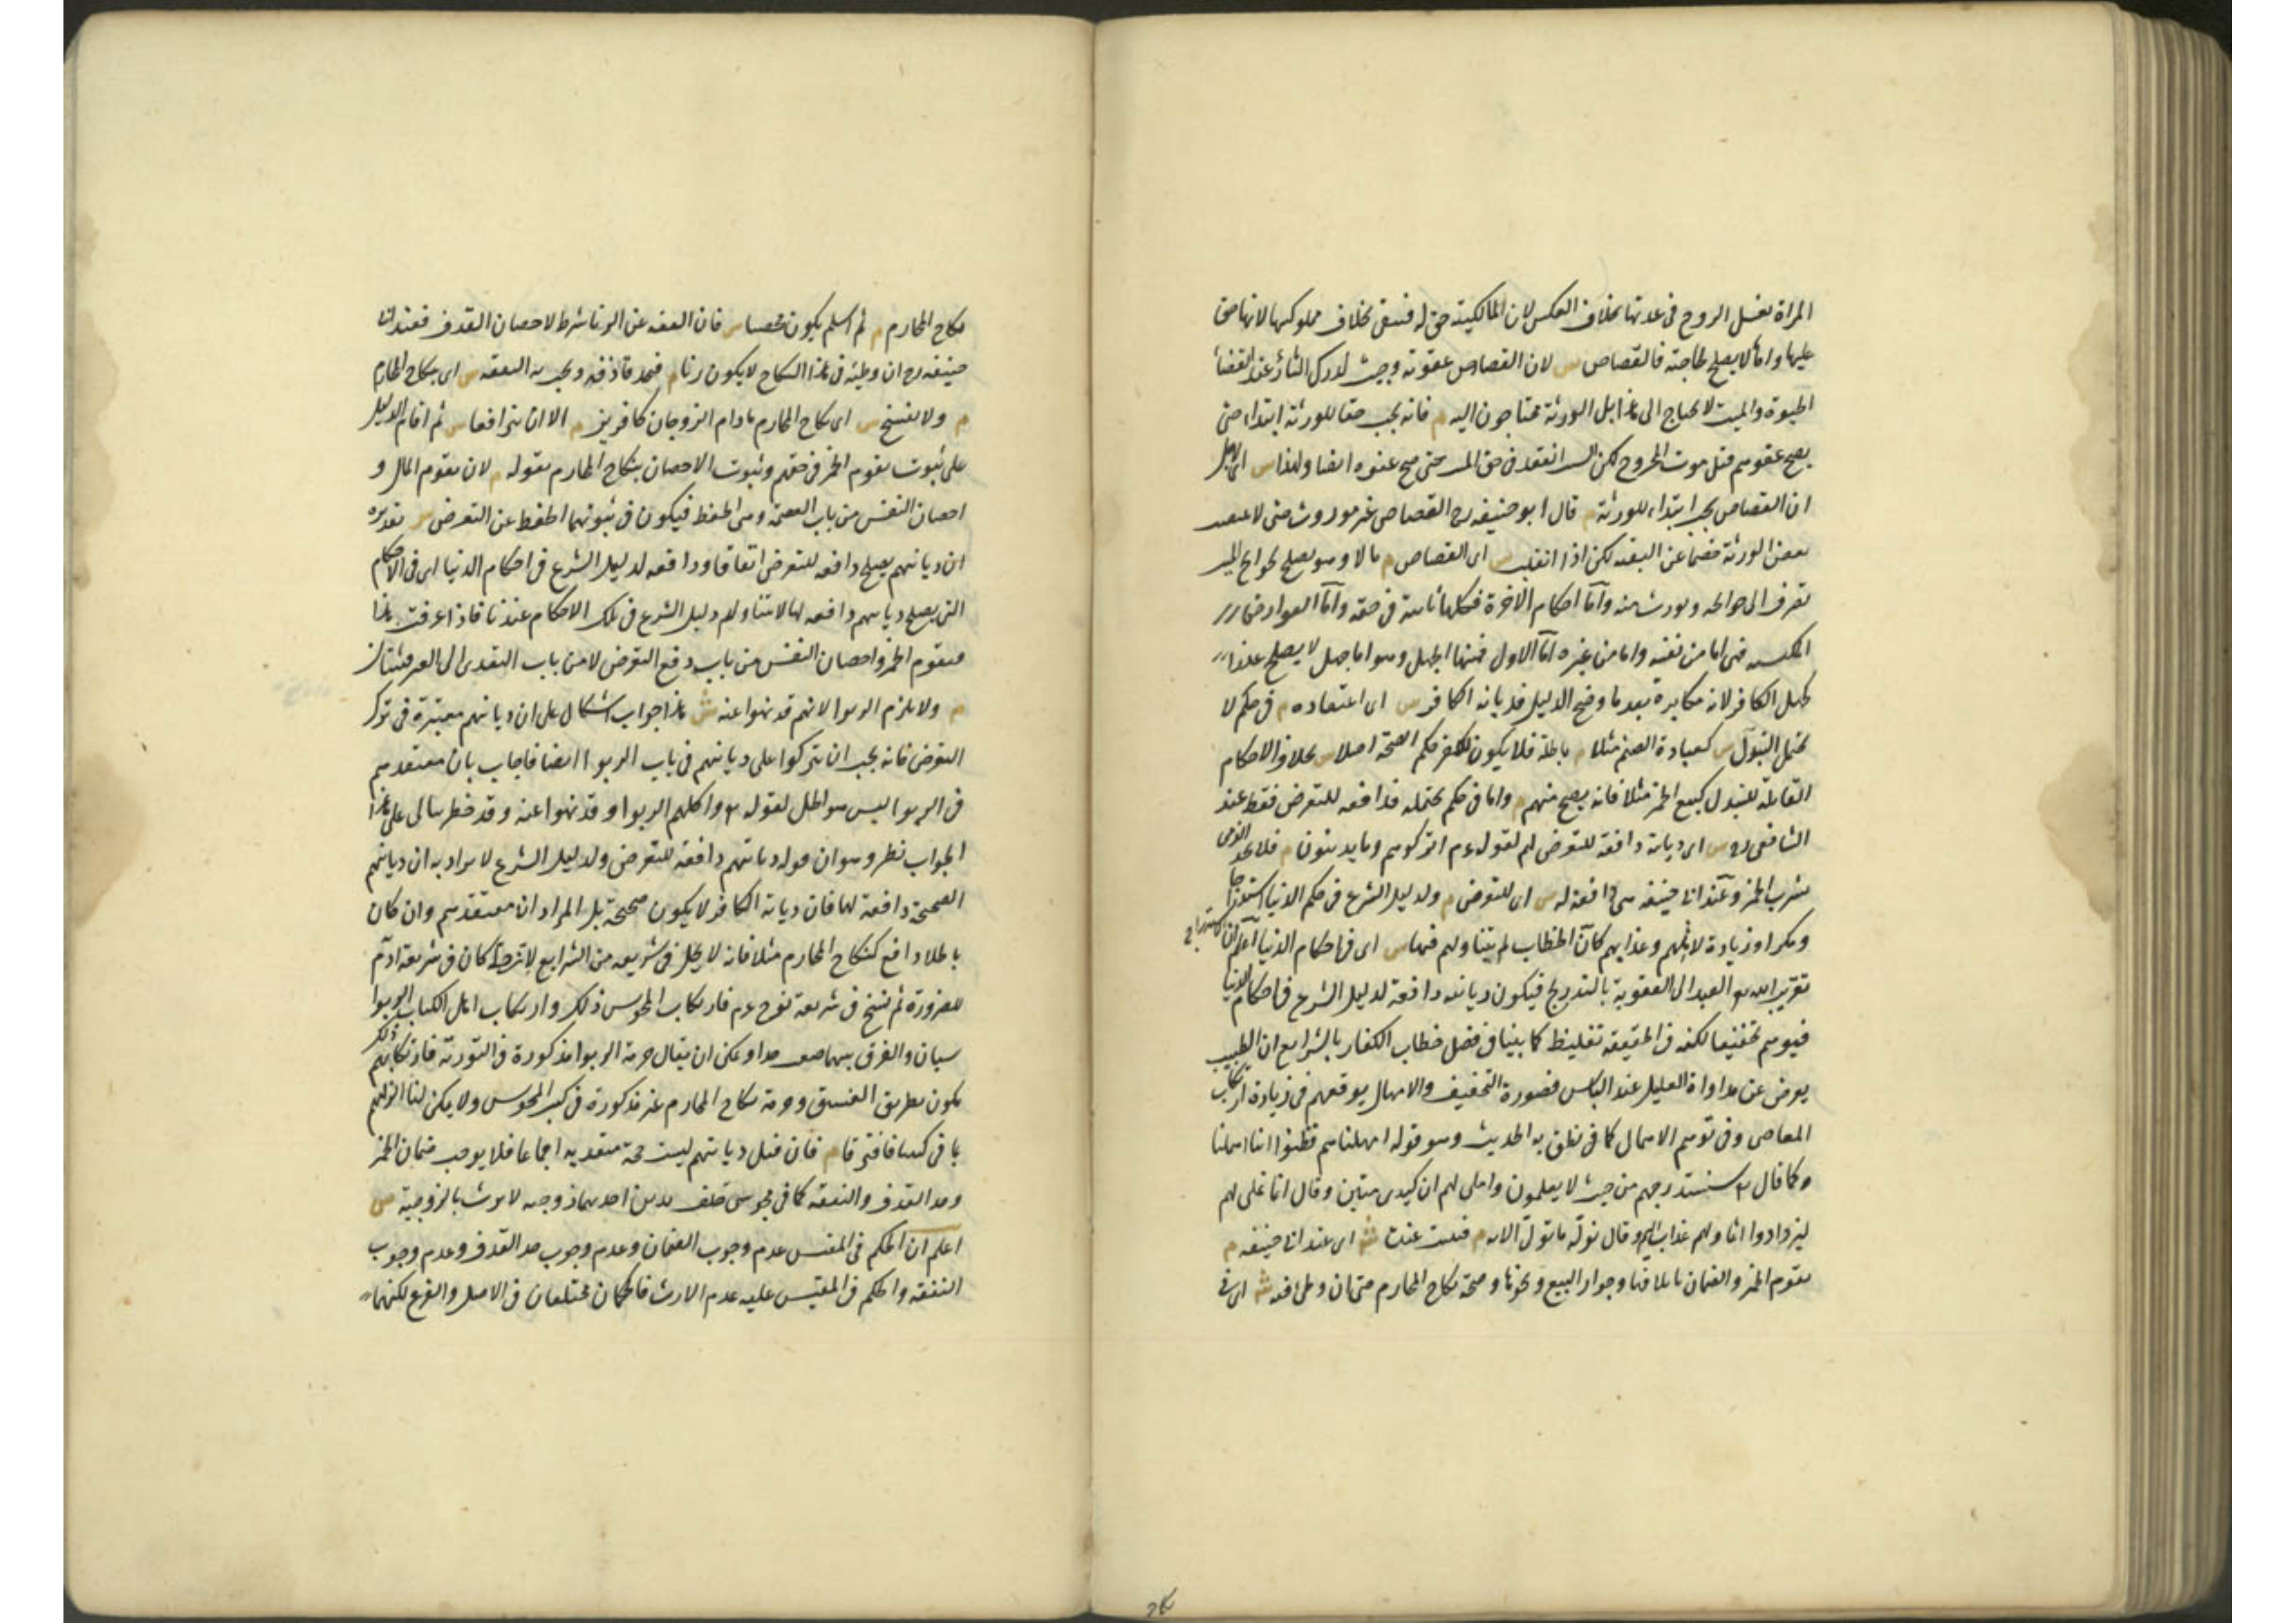 المراة تغسل الزوج فى عدتها بخلاف العكس لان المالكية حق له فتبقى بخلاف مملوكيتها لانها حق
عليها واما لا يصلح لحاجته فالقصاص س لان القصاص عقوبة وجبت لدرك الثار عند انقضا
الحيوة والميت لا يحتاج الى هذا بل الورثة محتاجون اليه م فانه يجب حقا للورثة ابتداء حتى
يصح عفوهم قبل موت المجروح لكن السبب انعقد فى حق المورث حتى صح عفوه ايضا ولهذا س اى لاجل
ان القصاص يجب ابتداء للورثة م قال ابو حنيفه رح القصاص غير موروث حتى لا ينتصب
بعض الورثة خصما عن البقيه لكن اذا انقلب س اى القصاص م مالا وهو يصلح لحوايج الميت
تصرف الى حوائجه ويورث منه واما احكام الاخرة فكلها ثابتة فى حقه واما العوارض
المكتسبه فهى اما من نفسه واما من غيره اما الاول فمنها الجهل وهو اما جهل لا يصلح عذرا
كجهل الكافر لانه مكابرة بعد ما وضح الدليل فديانة الكافر س اى اعتقاده م فى حكم لا
يحتمل التبدل س كعبادة الصنم مثلا م باطلة فلا يكون للكفر حكم الصحة اصلا س بخلاف الاحكام
القابلة للتبدل كبيع الخمر مثلا فانه يصح منهم م واما فى حكم يحتمله فدافعه للتعرض فقط عند
الشافعى رح س اى ديانته دافعة للتعرض لهم لقوله عم اتركوهم وما يدينون م فلا يحد الذمى
بشرب الخمر وعند ابى حنيفه هى دافعة له س اى للتعرض م ولدليل الشرع فى حكم الدنيا استدراجا
ومكرا وزيادة لاثمهم وعذابهم كان الخطاب لم يتناولهم فيها س اى فى احكام الدنيا اعلم ان الاستدراج
تقريب الله تع العبد الى العقوبة بالتدريج فيكون ديانته دافعة لدليل الشرع فى احكام الدنيا
فيوهم تخفيفا لكنه فى الحقيقة تغليظ كما بينا فى فصل خطاب الكفار بالشرايع ان الطبيب
يعرض عن مداواة العليل عند الياس فصورة التخفيف والامهال يوقعهم فى زيادة ارتكاب
المعاصى وفى توهم الامهال كما فى نطق به الحديث وهو قوله امهلناهم فظنوا اننا اهملنا
وكما قال تع سنستدرجهم من حيث لا يعلمون واملى لهم ان كيدى متين وقال انما نملى لهم
ليزدادوا اثما ولهم عذاب اليم وقال نوله ما تولى الايه م فثبت عنده ش اى عند ابى حنيفه م
تقوم الخمر والضمان باتلافها وجواز البيع ونحوها وصحة نكاح المحارم حتى ان وطئ فيه ش اى فى
نكاح المحارم م ثم اسلم يكون محصنا س فان العفه عن الزنا شرط لاحصان القذف فعند ابى
حنيفه رح ان وطئه فى هذا النكاح لا يكون زنا م فيحد قاذفه ويجب به النفقه س اى بنكاح المحارم
م ولا يفسخ س اى نكاح المحارم ما دام الزوجان كافرين م الا ان يترافعا س ثم اقام الدليل
على ثبوت تقوم الخمر فى حقهم وثبوت الاحصان بنكاح المحارم بقوله م لان تقوم المال و
احصان النفس من باب العصمة وهى الحفظ فيكون فى ثبوتهما الحفظ عن التعرض س تقديره
ان ديانتهم يصلح دافعه للتعرض اتفاقا ودافعه لدليل الشرع فى احكام الدنيا اى فى الاحكام
التى يصلح ديانتهم دافعه لها لا يتناولهم دليل الشرع فى تلك الاحكام عندنا فاذا عرفت هذا
فتقوم الخمر واحصان النفس من باب دفع التعرض لا من باب التعدى الى الغير فيثبتان
م ولا يلزم الربوا لانهم قد نهوا عنه ش هذا جواب اشكال على ان ديانتهم معتبرة فى ترك
التعرض فانه يجب ان يتركوا على ديانتهم فى باب الربوا ايضا فاجاب بان معتقدهم
فى الربوا ليس هو الحل لقوله تع واكلهم الربوا وقد نهوا عنه وقد خطر ببالى على هذا
الجواب نظر وهو ان قوله ديانتهم دافعة للتعرض ولدليل الشرع لا يراد به ان ديانتهم
الصحيحة دافعة لها فان ديانة الكافر لا يكون صحيحة بل المراد ان معتقدهم وان كان
باطلا دافع كنكاح المحارم مثلا فانه لا يحل فى شريعه من الشرايع كان فى شريعة ادم
للضرورة ثم نسخ فى شريعة نوح عم فارتكاب المجوس ذلك وارتكاب اهل الكتاب الربوا
سيان والفرق بينهما صعب جدا ويمكن ان يقال حرمة الربوا مذكورة فى التورية فارتكابهم ذلك
يكون بطريق الفسق وحرمة نكاح المحارم غير مذكورة فى كتب المجوس ولا يمكن لنا الزامهم
بما فى كتبنا فافترقا م فان قيل ديانتهم ليست حجة متعديه اجماعا فلا يوجب ضمان الخمر
وحد القذف والنفقه كما فى مجوسى خلف بنتين احديهما زوجته لا يرث بالزوجية س
اعلم ان الحكم فى المقيس عدم وجوب الضمان وعدم وجوب حد القذف وعدم وجوب
النفقه والحكم فى المقيس عليه عدم الارث فالحكمان مختلفان فى الاصل والفرع لكنهما